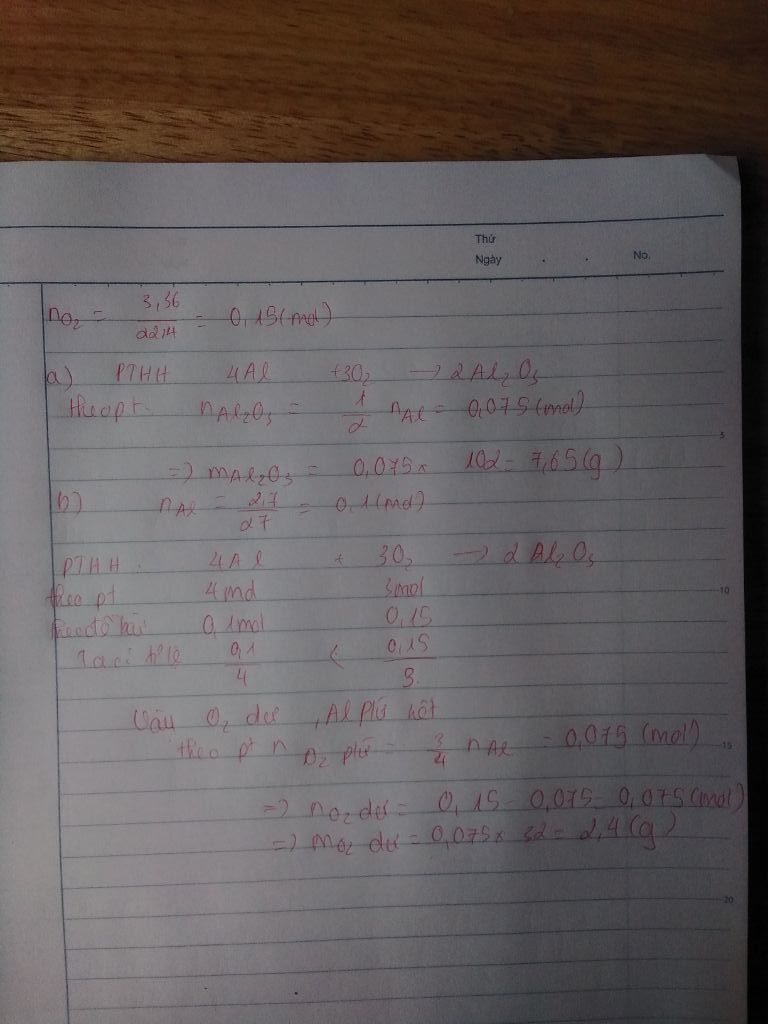 Thứ
Ngày . . No.
nO₂ = 3,36/22,4 = 0,15(mol)
a) PTHH 4Al +3O₂ → 2Al₂O₃
theo pt. nAl₂O₃ = 1/2 nAl = 0,075(mol)
5
=) mAl₂O₃ = 0,075 x 102 = 7,65(g)
b) nAl = 2,7/27 = 0,1(mol)
PTHH. 4Al + 3O₂ → 2Al₂O₃
theo pt 4mol 3mol
10
theo đề bài 0,1mol 0,15
Ta có: tỉ lệ 0,1/4 < 0,15/3
Vậy O₂ dư, Al pứ hết
theo pt nO₂ pứ = 3/4 nAl = 0,075 (mol)
15
=) nO₂ dư = 0,15 - 0,075 = 0,075(mol)
=) mO₂ dư = 0,075 x 32 = 2,4(g)
20